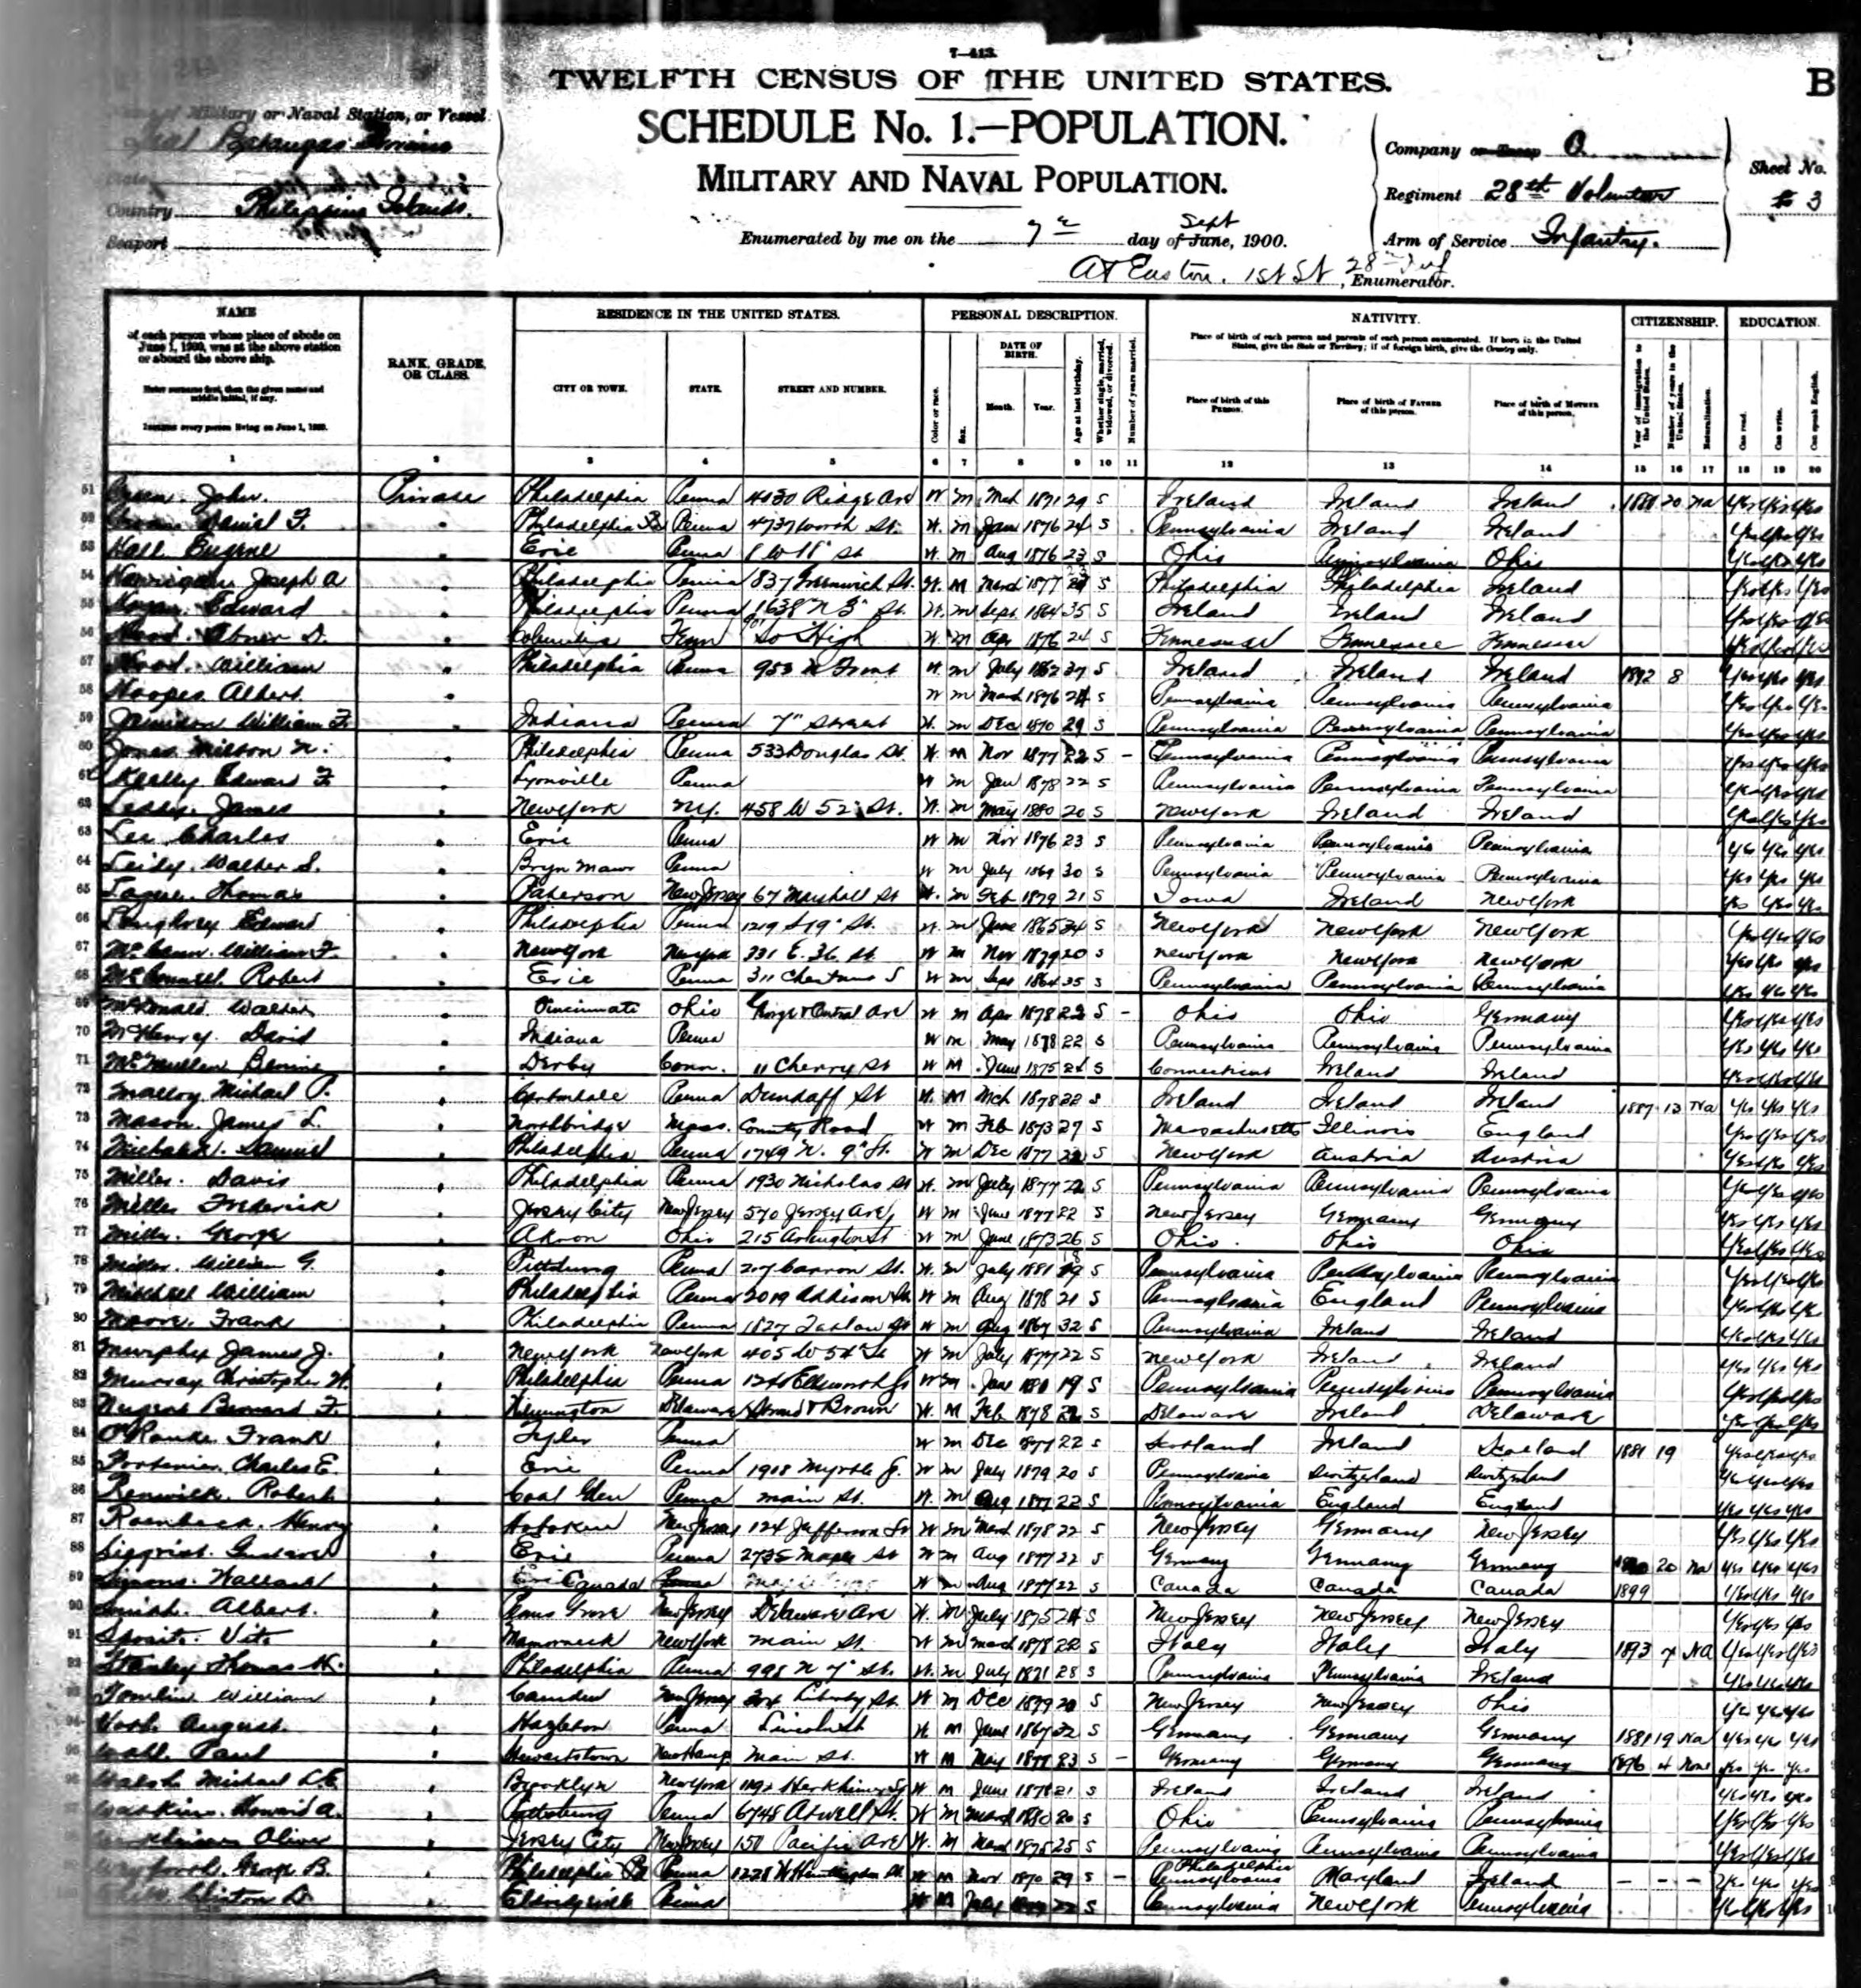 7—413.
TWELFTH CENSUS OF THE UNITED STATES.
B
SCHEDULE No. 1.—POPULATION.
MILITARY AND NAVAL POPULATION.
Name of Military or Naval Station, or Vessel
State
Country Philippine Islands.
Seaport
Enumerated by me on the 7th day of June, 1900. Sept
At Easton, 1st Lt, 28th Inf, Enumerator.
Company or Troop
Regiment 28th Volunteer
Arm of Service Infantry.
Sheet No.
3
NAME
of each person whose place of abode on June 1, 1900, was at the above station or aboard the above ship.
Enter surname first, then the given name and middle initial, if any.
Include every person living on June 1, 1900.
RANK, GRADE, OR CLASS.
RESIDENCE IN THE UNITED STATES.
CITY OR TOWN. STATE. STREET AND NUMBER.
PERSONAL DESCRIPTION.
Color or race. Sex. DATE OF BIRTH. Month. Year. Age at last birthday. Whether single, married, widowed, or divorced. Number of years married.
NATIVITY.
Place of birth of each person and parents of each person enumerated. If born in the United States, give the State or Territory; if of foreign birth, give the Country only.
Place of birth of this PERSON. Place of birth of FATHER of this person. Place of birth of MOTHER of this person.
CITIZENSHIP.
Year of immigration to the United States. Number of years in the United States. Naturalization.
EDUCATION.
Can read. Can write. Can speak English.
1 2 3 4 5 6 7 8 9 10 11 12 13 14 15 16 17 18 19 20
51 John. Private Philadelphia Penna 4430 Ridge Ave W M Mch 1871 29 S Ireland Ireland Ireland 20 Na Yes Yes Yes
52 Daniel F. Philadelphia Penna 4737 Worth St. W M Jan 1876 24 S Pennsylvania Ireland Ireland Yes Yes Yes
53 Hall Eugene Erie Penna W M Aug 1876 23 S Ohio Pennsylvania Ohio Yes Yes Yes
54 Joseph A Philadelphia Penna 837 Greenwich St. W M March 1877 S Philadelphia Philadelphia Ireland Yes Yes Yes
55 Edward Philadelphia Penna W M Sept 1864 35 S Ireland Ireland Ireland Yes Yes Yes
56 Hood. Abner D. Columbia Tenn So High W M Apr 1876 24 S Tennessee Tennessee Tennessee Yes Yes Yes
57 Hood. William Philadelphia Penna 953 N Front W M July 1862 37 S Ireland Ireland Ireland 1892 8 Yes Yes Yes
58 Hoopes Albert. W M March 1876 24 S Pennsylvania Pennsylvania Pennsylvania Yes Yes Yes
59 Jamison William F. Indiana Penna 7" Street W M Dec 1870 29 S Pennsylvania Pennsylvania Pennsylvania Yes Yes Yes
60 Jones Milton N. Philadelphia Penna 533 Douglas St. W M Nov 1877 22 S – Pennsylvania Pennsylvania Pennsylvania Yes Yes Yes
61 Kelley Edward F Lyonville Penna W M Jan 1878 22 S Pennsylvania Pennsylvania Pennsylvania Yes Yes Yes
62 James New York N.Y. 458 W 52" St. W M May 1880 20 S New York Ireland Ireland Yes Yes Yes
63 Lee Charles Erie Penna W M Nov 1876 23 S Pennsylvania Pennsylvania Pennsylvania Yes Yes Yes
64 Leidy. Walter S. Bryn Mawr Penna W M July 1869 30 S Pennsylvania Pennsylvania Pennsylvania Yes Yes Yes
65 Thomas Paterson New Jersey 67 Marshall St W M Feb 1879 21 S Iowa Ireland New York Yes Yes Yes
66 Edward Philadelphia Penna 1219 S 19" St. W M June 1865 34 S New York New York New York Yes Yes Yes
67 McCann. William F. New York New York 331 E. 36 St W M Nov 1879 20 S New York New York New York Yes Yes Yes
68 McConnell Robert Erie Penna 311 Chestnut S W M Sept 1864 35 S Pennsylvania Pennsylvania Pennsylvania Yes Yes Yes
69 McDonald Walter Cincinnati Ohio George & Central Ave W M Apr 1878 22 S – Ohio Ohio Germany Yes Yes Yes
70 McHenry. David Indiana Penna W M May 1878 22 S Pennsylvania Pennsylvania Pennsylvania Yes Yes Yes
71 McMullen Derby Conn. 11 Cherry St W M June 1875 24 S Connecticut Ireland Ireland Yes Yes Yes
72 Malloy Michael P. Carbondale Penna Dundaff St W M Mch 1878 22 S Ireland Ireland Ireland 1887 13 Na Yes Yes Yes
73 Mason. James L. Northbridge Mass. County Road W M Feb 1873 27 S Massachusetts Illinois England Yes Yes Yes
74 Samuel Philadelphia Penna 1749 N. 9" St. W M Dec 1877 22 S New York Austria Austria Yes Yes Yes
75 Miller. Davis Philadelphia Penna 1930 Nicholas St W M July 1877 22 S Pennsylvania Pennsylvania Pennsylvania Yes Yes Yes
76 Miller Frederick Jersey City New Jersey 570 Jersey Ave W M June 1877 22 S New Jersey Germany Germany Yes Yes Yes
77 Miller. George Akron Ohio 215 Arlington St W M June 1873 26 S Ohio Ohio Ohio Yes Yes Yes
78 Miller. William G. Pittsburg Penna 207 Carson St. W M July 1881 S Pennsylvania Pennsylvania Pennsylvania Yes Yes Yes
79 Mitchell William Philadelphia Penna 2019 Addison St W M Aug 1878 21 S Pennsylvania England Pennsylvania Yes Yes Yes
80 Moore. Frank Philadelphia Penna 1827 W M Aug 1867 32 S Pennsylvania Ireland Ireland Yes Yes Yes
81 Murphy James J. New York New York 405 W 54" St W M July 1877 22 S New York Ireland Ireland Yes Yes Yes
82 Murray Christopher H. Philadelphia Penna Ellsworth St W M 19 S Pennsylvania Pennsylvania Pennsylvania Yes Yes Yes
83 Nugent Bernard F. Wilmington Delaware & Brown W M Feb 1878 22 S Delaware Ireland Delaware Yes Yes Yes
84 O'Rourke Frank Tyler Penna W M Dec 1877 22 S Scotland Ireland Scotland 1881 19 Yes Yes Yes
85 Charles E. Erie Penna 1918 Myrtle St. W M July 1879 20 S Pennsylvania Switzerland Switzerland Yes Yes Yes
86 Renwick. Robert Coal Glen Penna Main St. W M Aug 1877 22 S Pennsylvania England England Yes Yes Yes
87 Henry Hoboken New Jersey 124 Jefferson St W M March 1878 22 S New Jersey Germany New Jersey Yes Yes Yes
88 Siegrist. Gustave Erie Penna 2735 Maple St W M Aug 1877 22 S Germany Germany Germany 20 Na Yes Yes Yes
89 Wallace Canada W M Aug 1877 22 S Canada Canada Canada 1899 Yes Yes Yes
90 Smith. Albert. Penns Grove New Jersey Delaware Ave W M July 1875 24 S New Jersey New Jersey New Jersey Yes Yes Yes
91 Sposito. Vito Mamaroneck New York Main St. W M March 1878 22 S Italy Italy Italy 1893 7 NA Yes Yes Yes
92 Stanley Thomas Philadelphia Penna 998 N 7" St. W M July 1871 28 S Pennsylvania Pennsylvania Ireland Yes Yes Yes
93 Tomlin William Camden New Jersey Liberty St. W M Dec 1879 20 S New Jersey New Jersey Ohio Yes Yes Yes
94 August. Hazleton Penna Lincoln St W M June 1867 32 S Germany Germany Germany 1881 19 Na Yes Yes Yes
95 Wahl. Paul Stewartstown New Hamp Main St. W M May 1877 23 S – Germany Germany Germany 1896 4 None Yes Yes Yes
96 Walsh Michael Brooklyn New York Herkimer St W M June 1878 21 S Ireland Ireland Ireland Yes Yes Yes
97 Watkins. Howard A. Pittsburg Penna 6748 Atwell St. W M March 1880 20 S Ohio Pennsylvania Pennsylvania Yes Yes Yes
98 Oliver Jersey City New Jersey 151 Pacific Ave W M March 1875 25 S Pennsylvania Pennsylvania Pennsylvania Yes Yes Yes
99 George B. Philadelphia Pa Penna 1228 W Huntingdon St W M Nov 1870 29 S – Philadelphia Pennsylvania Maryland Ireland – – – Yes Yes Yes
100 Clinton D. Penna W M July 22 S Pennsylvania New York Pennsylvania Yes Yes Yes